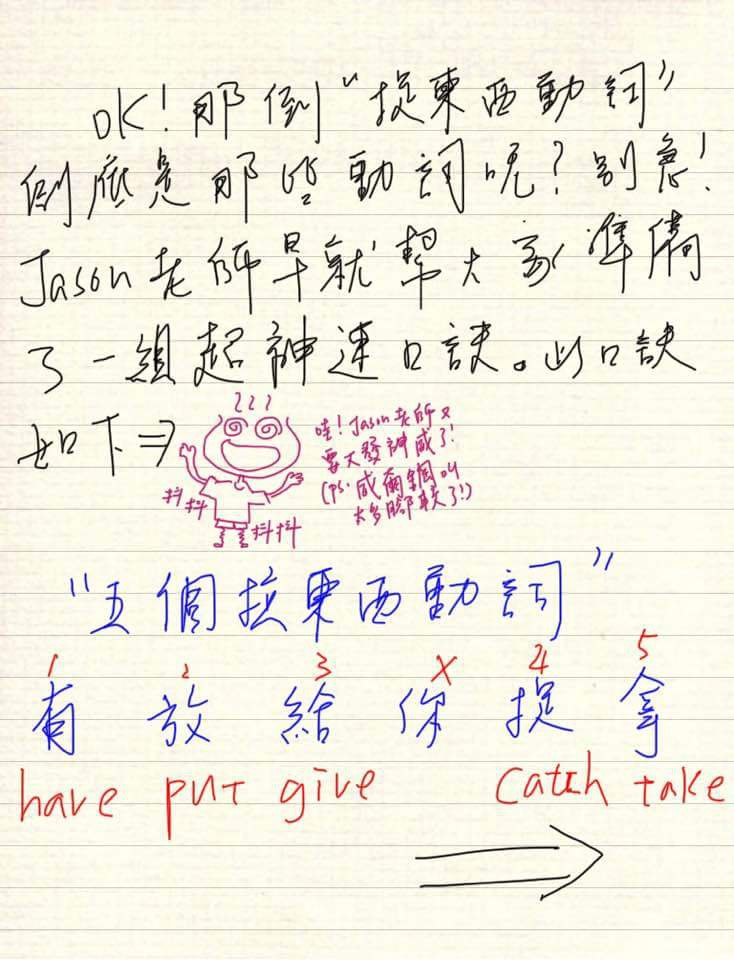 OK! 那倒“捉東西動詞”
倒底是那些動詞呢?別急!
Jason老師早就幫大家準備
了一組超神速口訣。此口訣
如下⇒
哇! Jason老師又
要大發神威了!
(ps. 威爾鋼
太多腳軟了!)
抖抖 抖抖
“五個捉東西動詞”
1 2 3 X 4 5
有 放 給 你 捉 拿
have put give catch take